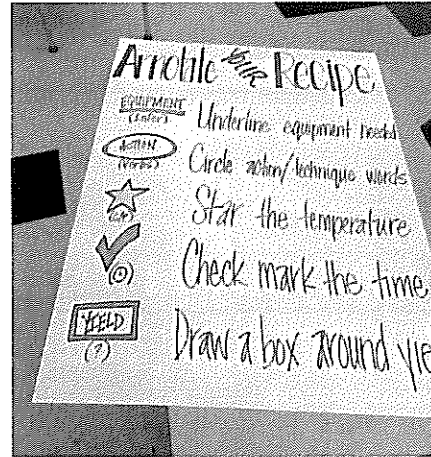 Annotate YOUR Recipe
EQUIPMENT
(infer)
Underline equipment needed
ACTION
(verbs)
Circle action/technique words
Star the temperature
Check mark the time
YIELD
(?)
Draw a box around yie